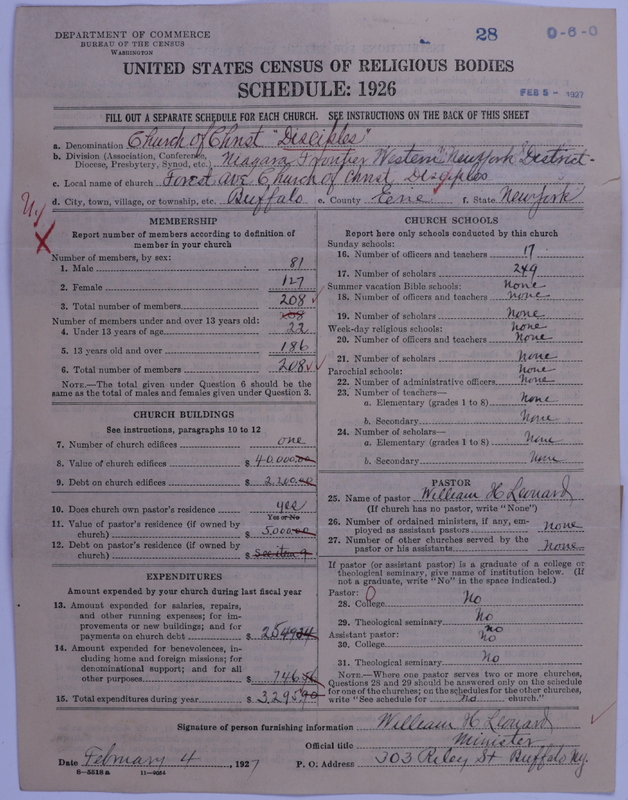 DEPARTMENT OF COMMERCE
BUREAU OF THE CENSUS
WASHINGTON
28
0-6-0
FEB 5 - 1927
UNITED STATES CENSUS OF RELIGIOUS BODIES
SCHEDULE: 1926
FILL OUT A SEPARATE SCHEDULE FOR EACH CHURCH. SEE INSTRUCTIONS ON THE BACK OF THIS SHEET
a. Denomination Church of Christ "Disciples"
b. Division (Association, Conference, Diocese, Presbytery, Synod, etc.) Niagara Frontier Western New York District-
c. Local name of church Forest ave Church of Christ Disciples
d. City, town, village, or township, etc. Buffalo e. County Erie f. State New York
MEMBERSHIP
Report number of members according to definition of
member in your church
Number of members, by sex:
1. Male 81
2. Female 127
3. Total number of members 208
208
Number of members under and over 13 years old:
4. Under 13 years of age 22
5. 13 years old and over 186
6. Total number of members 208
NOTE.—The total given under Question 6 should be the
same as the total of males and females given under Question 3.
CHURCH BUILDINGS
See instructions, paragraphs 10 to 12
7. Number of church edifices one
8. Value of church edifices $ 40,000.00
9. Debt on church edifices $ 2,200.00
10. Does church own pastor's residence yes
Yes or No
11. Value of pastor's residence (if owned by
church) $ 5,000.00
12. Debt on pastor's residence (if owned by
church) $ See item 9
EXPENDITURES
Amount expended by your church during last fiscal year
13. Amount expended for salaries, repairs,
and other running expenses; for im-
provements or new buildings; and for
payments on church debt $ 2549.34
14. Amount expended for benevolences, in-
cluding home and foreign missions; for
denominational support; and for all
other purposes $ 746.56
15. Total expenditures during year $ 3,295.90
CHURCH SCHOOLS
Report here only schools conducted by this church
Sunday schools:
16. Number of officers and teachers 17
17. Number of scholars 249
Summer vacation Bible schools: None
18. Number of officers and teachers None
19. Number of scholars None
Week-day religious schools: None
20. Number of officers and teachers None
21. Number of scholars None
Parochial schools: None
22. Number of administrative officers None
23. Number of teachers—
a. Elementary (grades 1 to 8) None
b. Secondary None
24. Number of scholars—
a. Elementary (grades 1 to 8) None
b. Secondary None
PASTOR
25. Name of pastor William H Leonard
(If church has no pastor, write "None")
26. Number of ordained ministers, if any, em-
ployed as assistant pastors none
27. Number of other churches served by the
pastor or his assistants None
If pastor (or assistant pastor) is a graduate of a college or
theological seminary, give name of institution below. (If
not a graduate, write "No" in the space indicated.)
Pastor: 0
28. College No
29. Theological seminary No
no
Assistant pastor: No
30. College
31. Theological seminary No
NOTE.—Where one pastor serves two or more churches,
Questions 28 and 29 should be answered only on the schedule
for one of the churches; on the schedules for the other churches,
write "See schedule for No church."
Signature of person furnishing information William H Leonard
Official title Minister
Date February 4, 1927 P. O. Address 303 Riley St Buffalo Ny.
6-5518a 11-9054